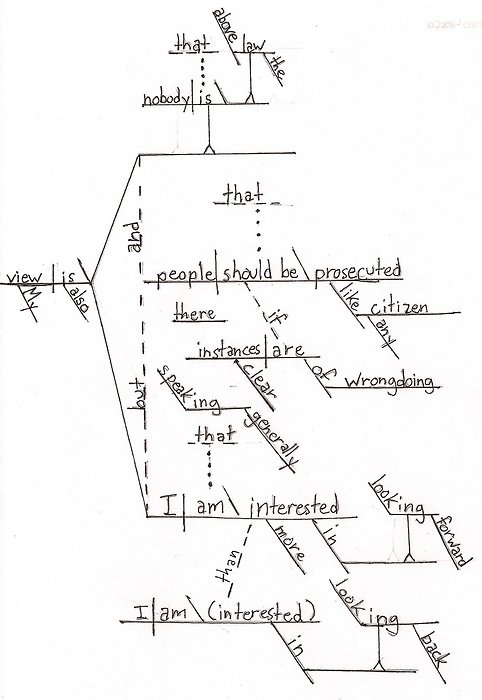 above
that law
the
nobody is
and
that
view is
My also
people should be prosecuted
like citizen
any
if
there
instances are
clear
of wrongdoing
speaking
generally
but
that
I am interested
more
in
looking
forward
than
I am (interested)
in
looking
back